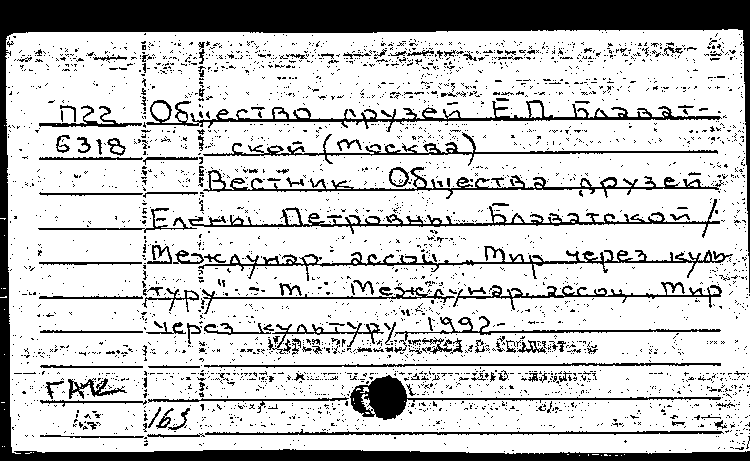 П22 Общество друзей Е.П. Блават-
6318 ской (Москва)
Вестник Общества друзей
Елены Петровны Блаватской /
Междунар. ассоц. „Мир через куль-
туру". - М. : Междунар. ассоц. „Мир
через культуру", 1992-
163